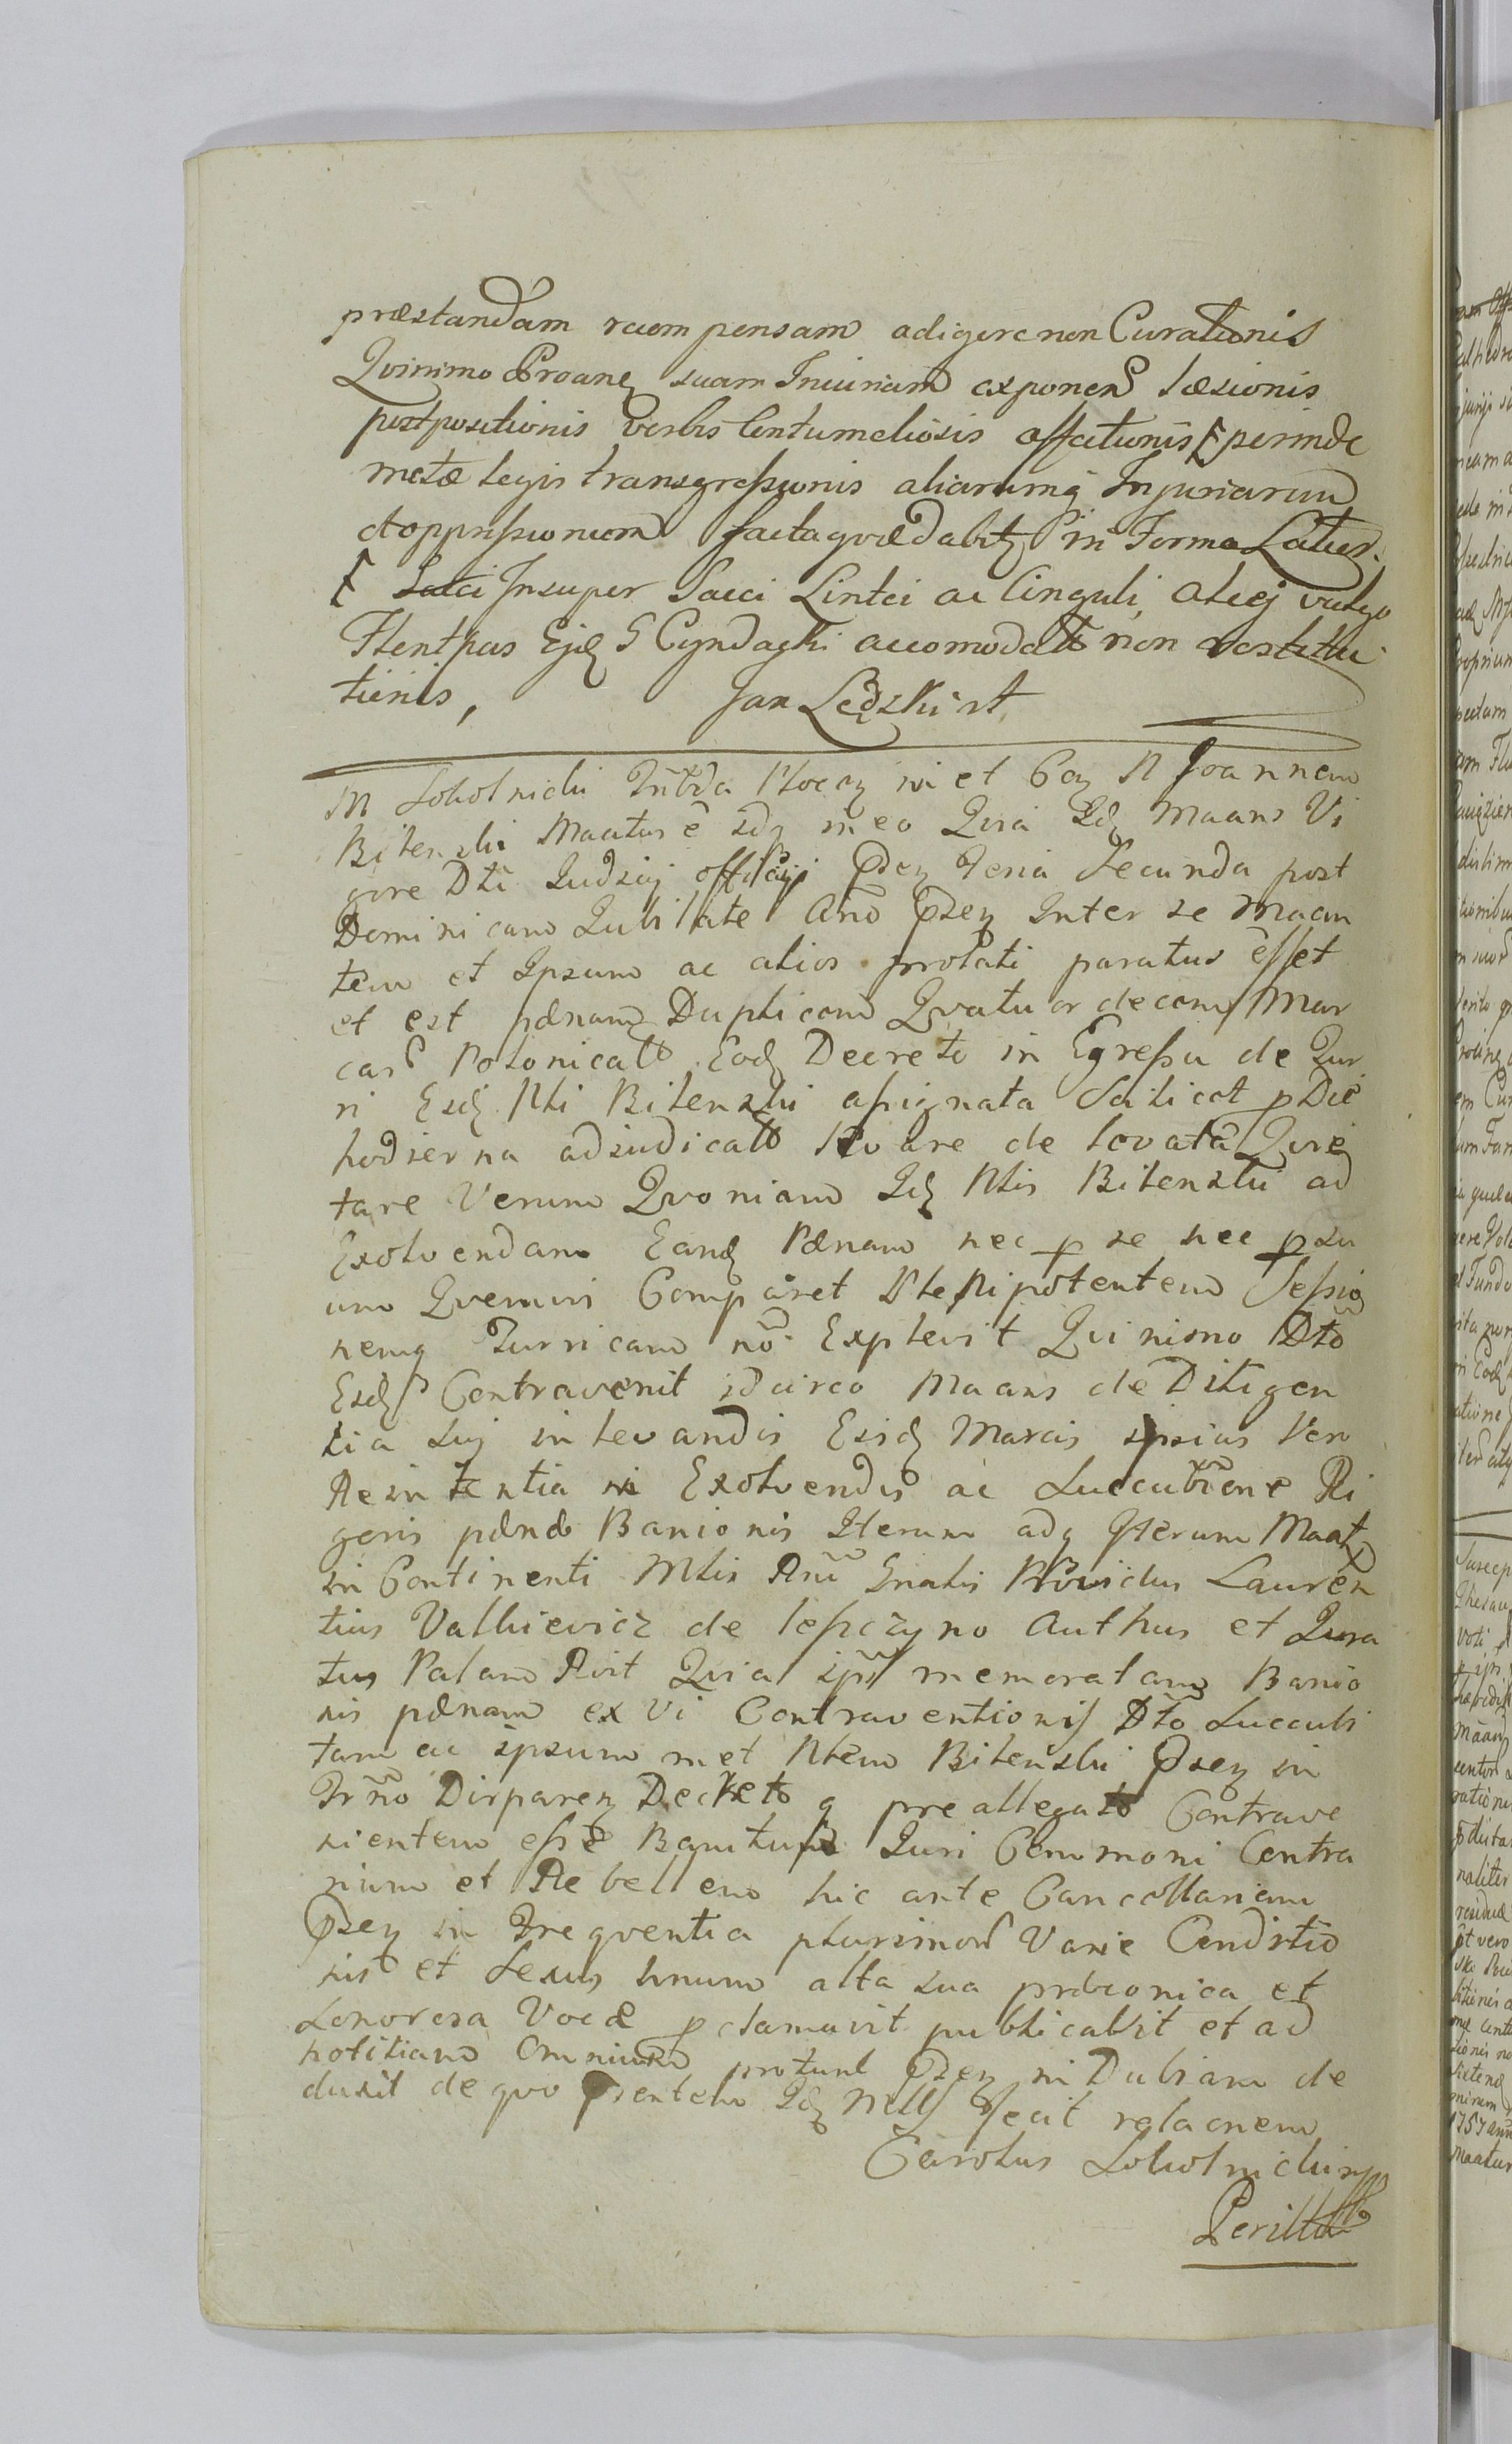 præstandam recompensam adigere non Curationis
Quinimo Proang suam Iniuriam exponen læsionis
postpositionis verbis Contumeliosis affectionis perinde
metæ legis transgressionis aliarumq Injuriarum
et oppressionum facta quæ dabit in Forma Latius.
Sacci Insuper Sacci Lintei ac Cinguli, alicj vulgo
Ejd S Cyndacki accomodat non restitu
tionis, Jan Lędzki st
M Sokolnicki Plocen et Cap N Joannem
Bitenski Maatus e Quia Idq Maans Vi
gore Dti Judicij officij Psen Feria Secunda post
Dominicam Jubilate Ano Psen Inter se Maan
tem et Ipsum ac alios prolati paratus esset
et est pænam Duplicem Quatuor decem Mar
cas Polonicals Eod Decreto in Egressu de Tur
ri Esd Nli Bitenski assignata Scilicet p Die
hodierna adjudicats levare de levata Quie
tare Verum Quoniam Id Nlis Bitenski ad
Exolvendam Eand Pænam nec p se nec p su
um Quemvis Comparet Plenipotentem Sessio
nemq Turricam no Explevit Quinimo Dto
Esd Contravenit idcirco Maans de Diligen
tia sui in levandis Eisd Marcis ipsius Vero
Renitentia in Exolvendis ac Succubione Ri
goris pænæ Banionis Iterum adq Iterum Maat
in Continenti Mlis Rni Gnalis Providus Lauren
tius Valkievicz de lesczyno Authus et Jura
tus Palam Rvit Quia ips memoratam Banio
nis pænam ex Vi Contraventionis Dto Succubi
tam ac ipsum met Nlem Bitenski Psen in
Trno Disparen Decreto q preallegato Contrave
nientem esse Banitum Juri Communi Contra
rium et Rebellem hic ante Cancellariam
Psen in Frequentia plurimor Varie Conditio
nis et Sexus hnum alta sua præconica et
Sonorosa Voce pclamavit publicavit et ad
notitiam Omnium protunc Psen in Dubiam de
duxit de quo Psentem Id Mlls fecit relacnem
Carolus Sokolnicki mp
Perill